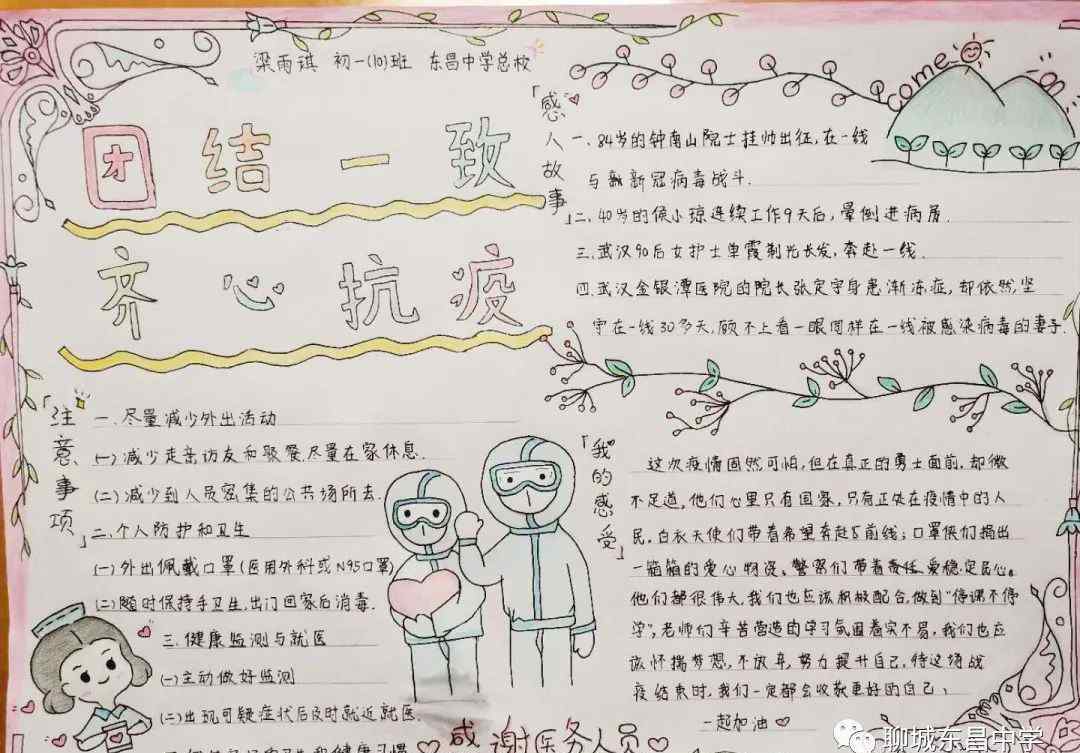 梁雨琪 初一(10)班 东昌中学总校
团结一致
齐心抗疫
come on
「感人故事」
一.84岁的钟南山院士挂帅出征,在一线
与新新冠病毒战斗.
二.40岁的侯小琼连续工作9天后,晕倒进病房.
三.武汉90后女护士单霞剃光长发,奔赴一线.
四.武汉金银潭医院的院长张定宇身患渐冻症,却依然坚
守在一线30多天,顾不上看一眼同样在一线被感染病毒的妻子.
「注意事项」
一.尽量减少外出活动
(一)减少走亲访友和聚餐,尽量在家休息.
(二)减少到人员密集的公共场所去.
二.个人防护和卫生
(一)外出佩戴口罩(医用外科或N95口罩)
(二)随时保持手卫生,出门回家后消毒.
三.健康监测与就医
(一)主动做好监测
(二)出现可疑症状后及时就近就医.
「我的感受」
这次疫情固然可怕,但在真正的勇士面前,却微
不足道,他们心里只有国家,只有正处在疫情中的人
民,白衣天使们带着希望奔赴前线;口罩侠们捐出
一箱箱的爱心物资、警察们带着责任、爱稳定民心。
他们都很伟大,我们也应该积极配合,做到"停课不停
学",老师们辛苦营造的学习氛围着实不易,我们也应
该怀揣梦想,不放弃,努力提升自己,待这场战
疫结束时,我们一定都会收获更好的自己,
一起加油
感谢医务人员
聊城东昌中学